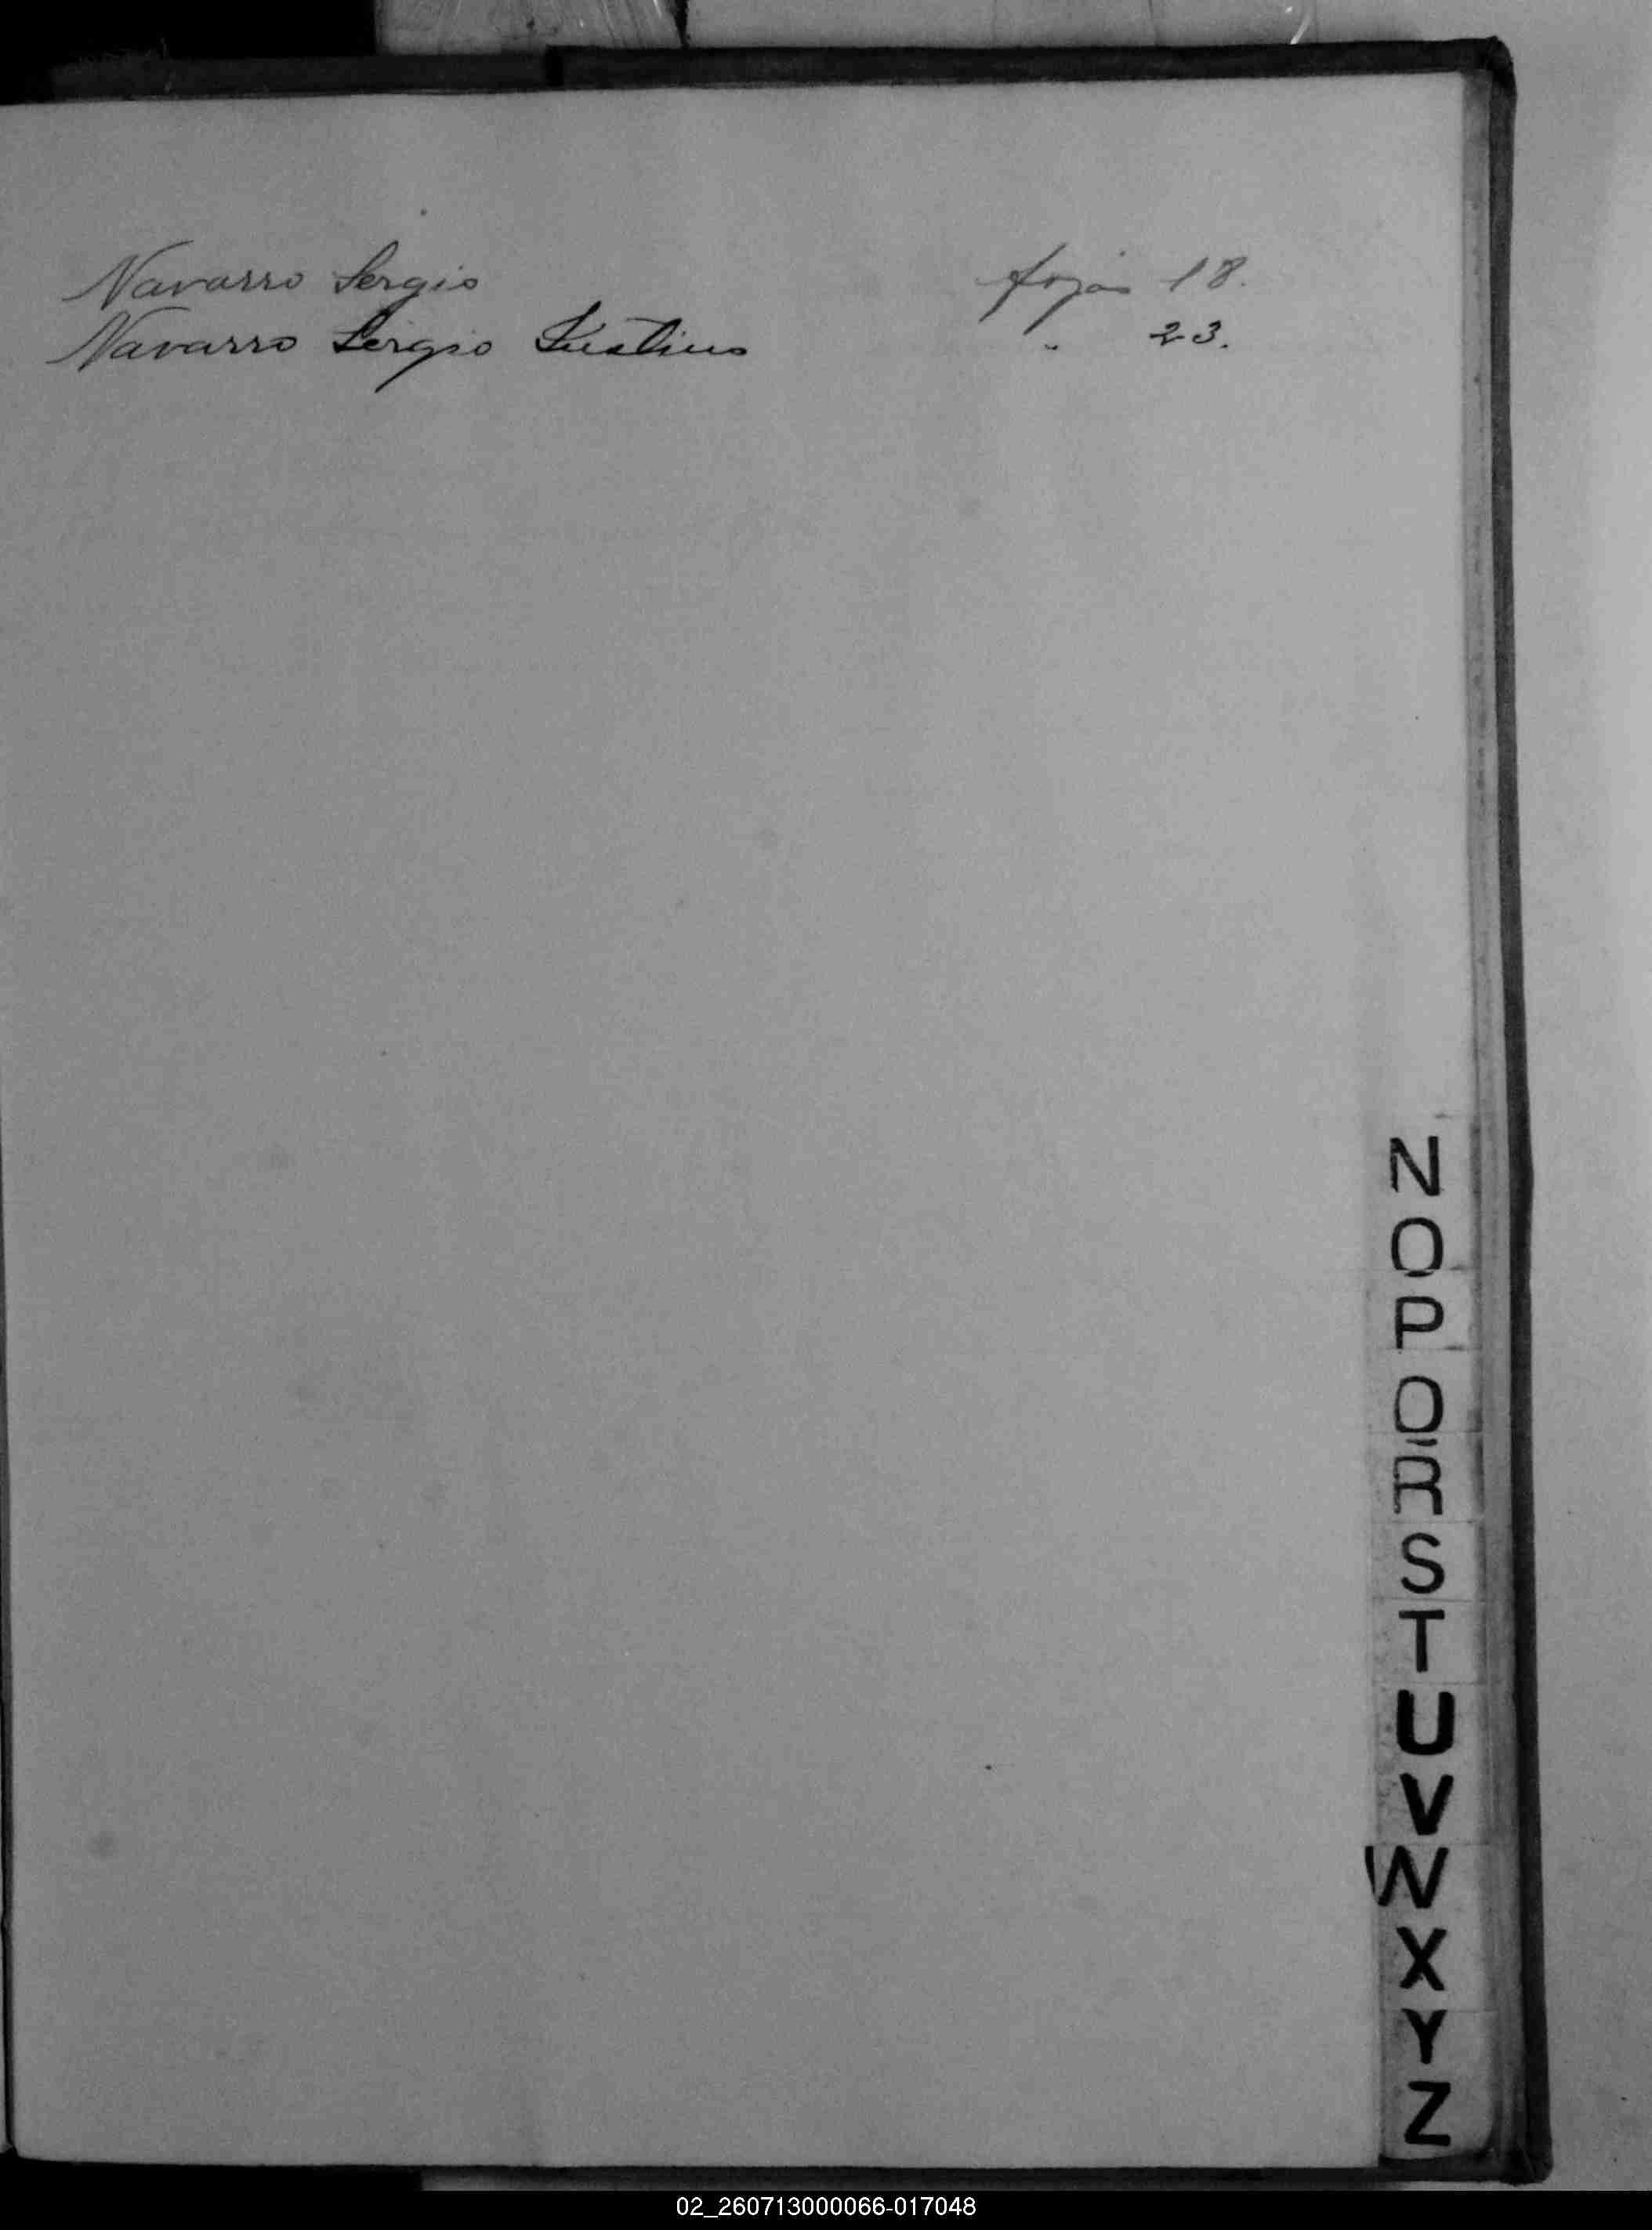 Navarro Sergio fojas 18.
Navarro Sergio Justino " 23.
N
O
P
Q
R
S
T
U
V
W
X
Y
Z
02_260713000066-017048